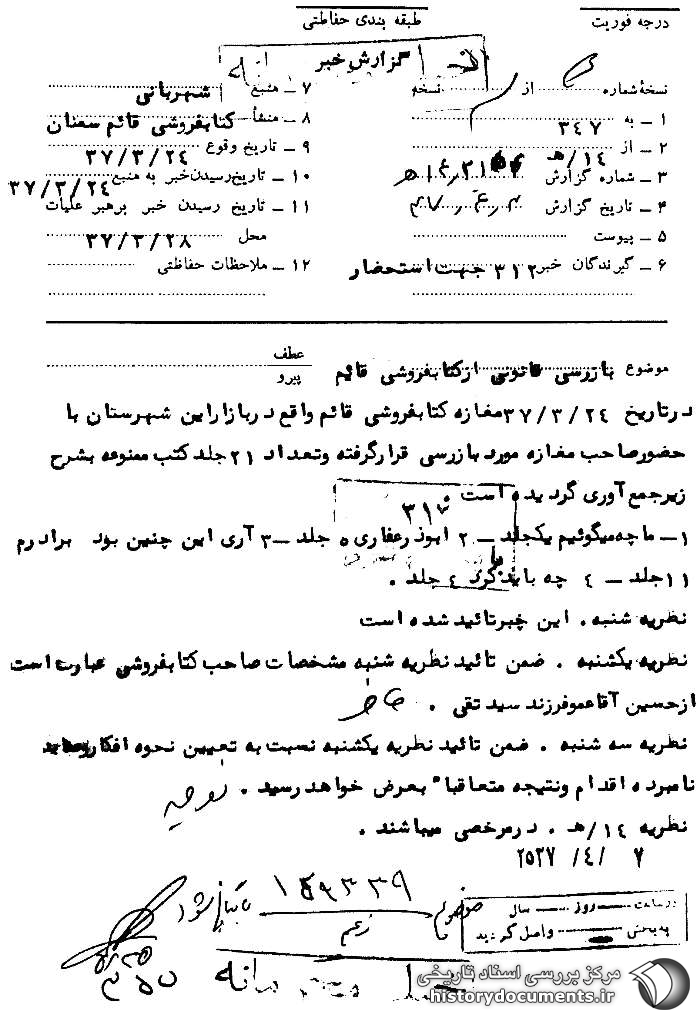 درجه فوریت
طبقه بندی حفاظتی
گزارش خبر
نسخهٔ شماره از نسخه
۱ ـ به ۳۴۷
۲ ـ از ۱۴/ﻫ
۳ ـ شماره گزارش
۴ ـ تاریخ گزارش
۵ ـ پیوست
۶ ـ گیرندگان خبر ۳۱۲ جهت استحضار
۷ ـ منبع شهربانی
۸ ـ منشأ کتابفروشی قائم سمنان
۹ ـ تاریخ وقوع ۳۷/۳/۲۴
۱۰ ـ تاریخ رسیدن خبر به منبع ۳۷/۳/۲۴
۱۱ ـ تاریخ رسیدن خبر برهبر عملیات
محل ۳۷/۳/۲۸
۱۲ ـ ملاحظات حفاظتی
موضوع بازرسی قانونی ازکتابفروشی قائیم
عطف
پیرو
درتاریخ ۳۷/۳/۲۴ مغازه کتابفروشی قائم واقع دربازاراین شهرستان با
حضورصاحب مغازه مورد بازرسی قرارگرفته وتعداد ۲۱ جلد کتب ممنوعه بشرح
زیرجمع آوری گردیده است .
۳۱۲
۱ـ ما چه میگوئیم یکجلد ـ ۲ ابوذرغفاری ۵ جلد ـ ۳ آری این چنین بود برادرم
۱۱ جلد ـ ۴ چه باید کرد ۴ جلد .
نظریه شنبه . این خبر تائید شده است
نظریه یکشنبه . ضمن تائید نظریه شنبه مشخصات صاحب کتابفروشی عبارت است
ازحسین آقاعموفرزند سید تقی .
نظریه سه شنبه . ضمن تائید نظریه یکشنبه نسبت به تعیین نحوه افکار
نامبرده اقدام ونتیجه متعاقبا" بعرض خواهد رسید .
نظریه ۱۴/ﻫ . درمرخصی میباشند .
۷ /۴/ ۲۵۳۷
در ساعت روز سال
به بخش واصل گردید
مرکز بررسی اسناد تاریخی
historydocuments.ir